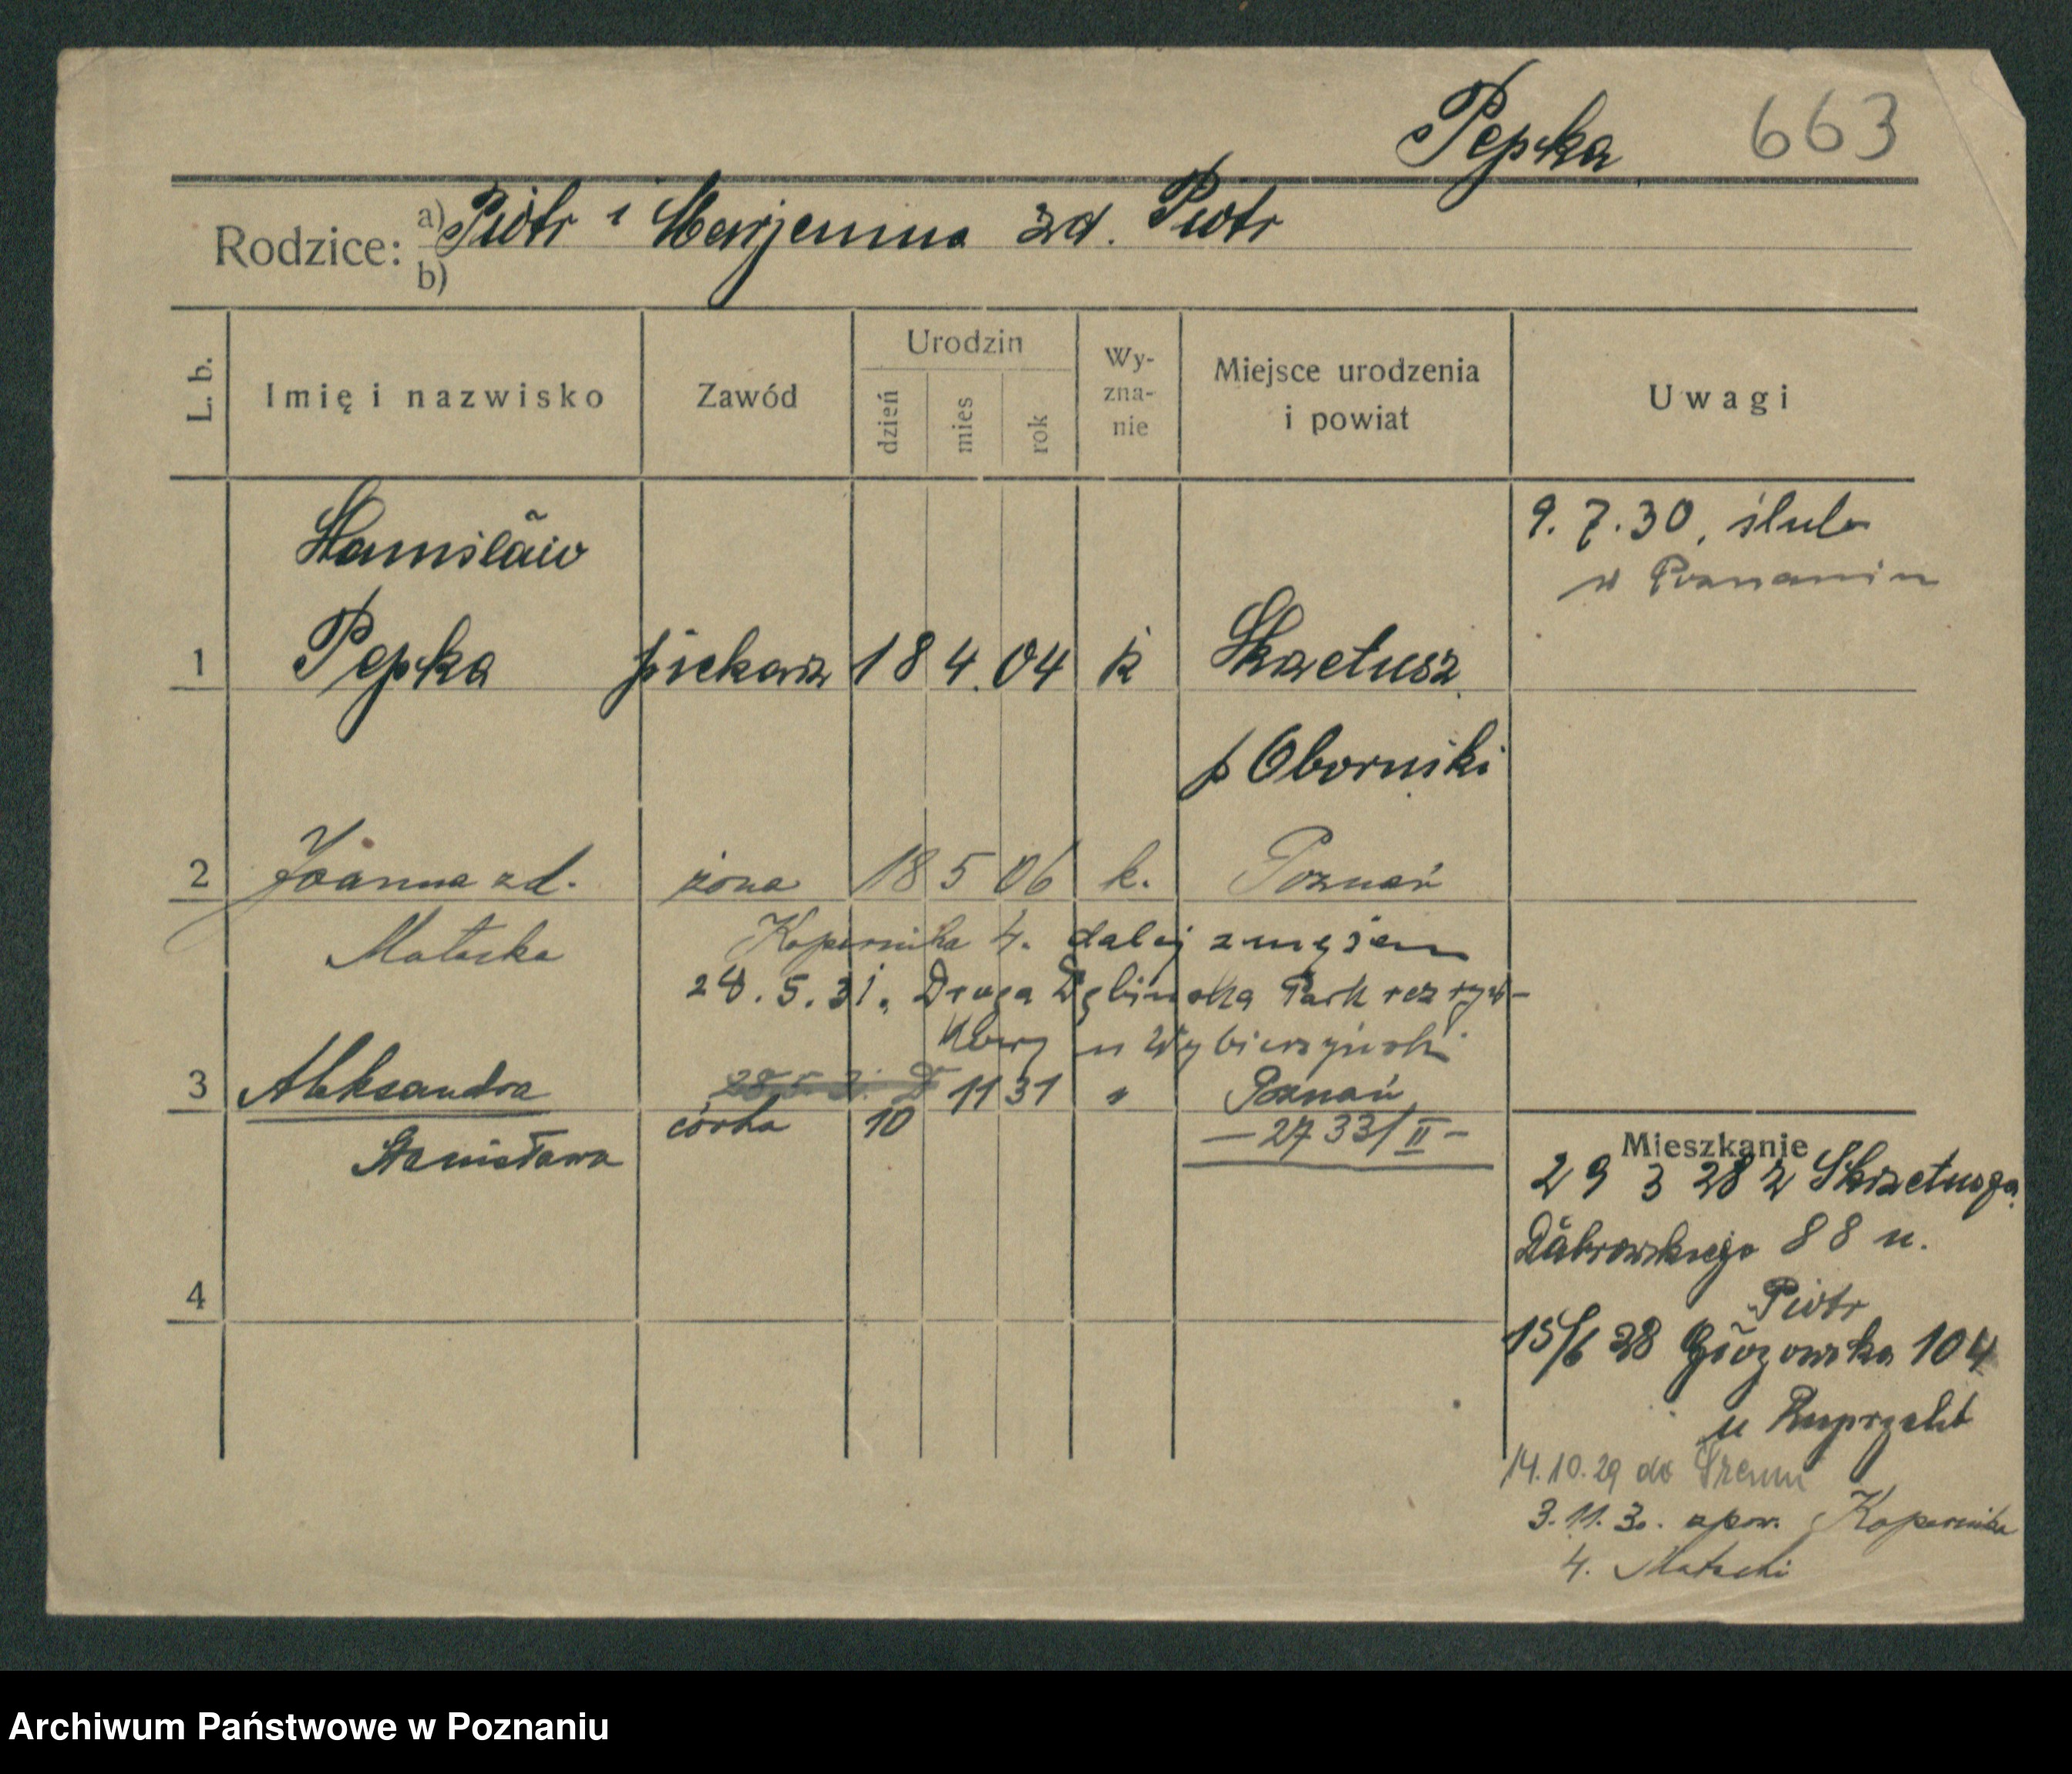 Pepka 663
Rodzice: a) Piotr i Marjanna zd. Piotr
b)
L. b.
Imię i nazwisko
Zawód
Urodzin
dzień
mies
rok
Wy-
zna-
nie
Miejsce urodzenia
i powiat
Uwagi
9.7.30, ślub
w Poznaniu
Stanisław
1 Pepka piekarz 18 4. 04 k Skrzetusz
p Oborniki
2 Joanna zd. żona 18 5 06 k. Poznań
Matecka Kopernika 4. dalej z mężem
28.5.31. Droga Dębińska Park rozryw-
kowy u Wybierzyński
3 Aleksandra 11 31 " Poznań
córka 10 — 2733/II —
Stanisława
Mieszkanie
29 3 28 z Skrzetusza
Dąbrowskiego 88 u.
Piotr
4
15/6 28 Głogowska 104
u Ruprycht
14.10.29 do Śremu
3.11.30. spow. Kopernika
4. Matecki
Archiwum Państwowe w Poznaniu